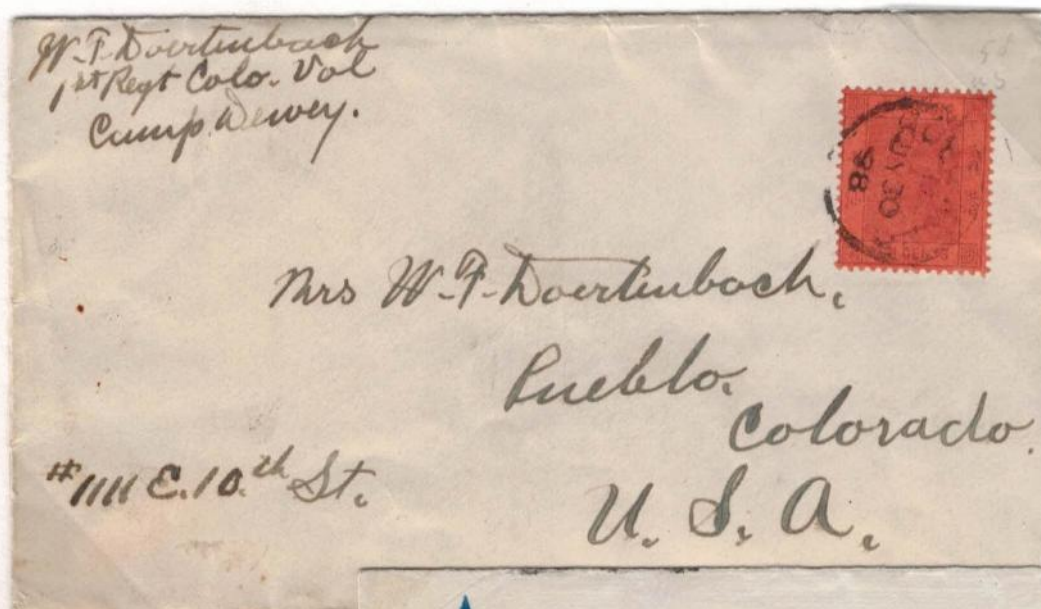 W. F. Doertenbach
1st Regt Colo. Vol
Camp Dewey.
JY 30
98
Mrs W. F. Doertenbach,
Pueblo.
Colorado.
U. S. A.
#1111 E. 10.th St.